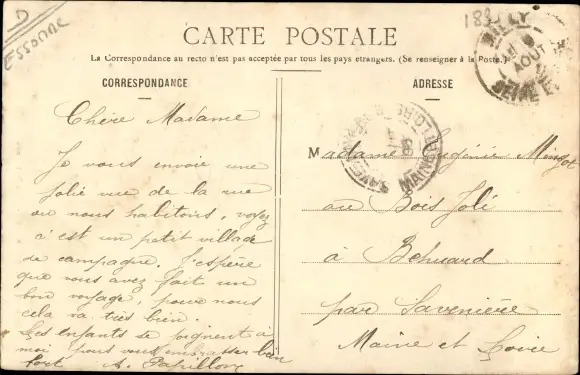 D
ESSONNE
CARTE POSTALE
La Correspondance au recto n'est pas acceptée par tous les pays etrangers. (Se renseigner à la Poste.)
CORRESPONDANCE
Chère Madame
Je vous envoie une
jolie vue de la rue
ou nous habitons, voyez
c'est un petit village
de campagne. J'espère
que vous avez fait un
bon voyage, pour nous
cela va très bien.
Les enfants se joignent à
moi pour vous embrasser bien
fort A. Papillon
ADRESSE
Madame Eugénie
au Bois Joli
à Behuard
par Savenière
Maine et Loire
MILLY
AOUT
SEINE ET
MAINE